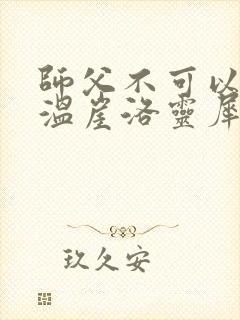 師父不可以
溫崖洛靈犀
玖久安